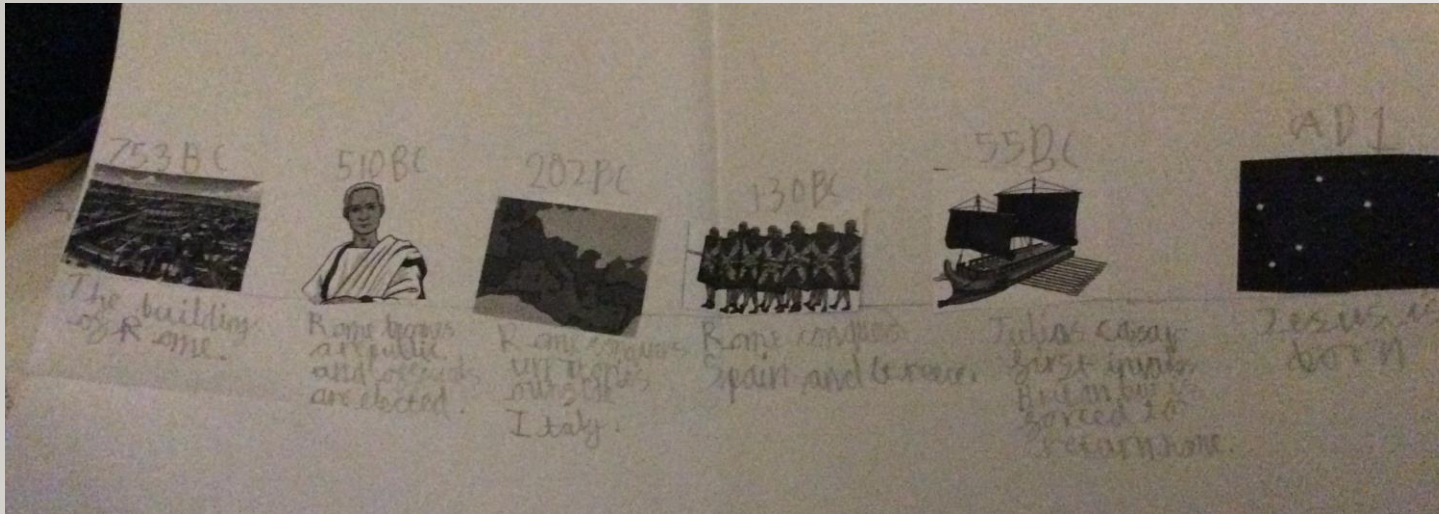 753BC
The building
of Rome.
510BC
Rome becomes
a republic
and officials
are elected.
202BC
Rome conquers
outside
Italy.
130BC
Rome conquers
Spain and Greece.
55BC
Julius Caesar
first invades
but is
forced to
return home.
AD1
Jesus is
born